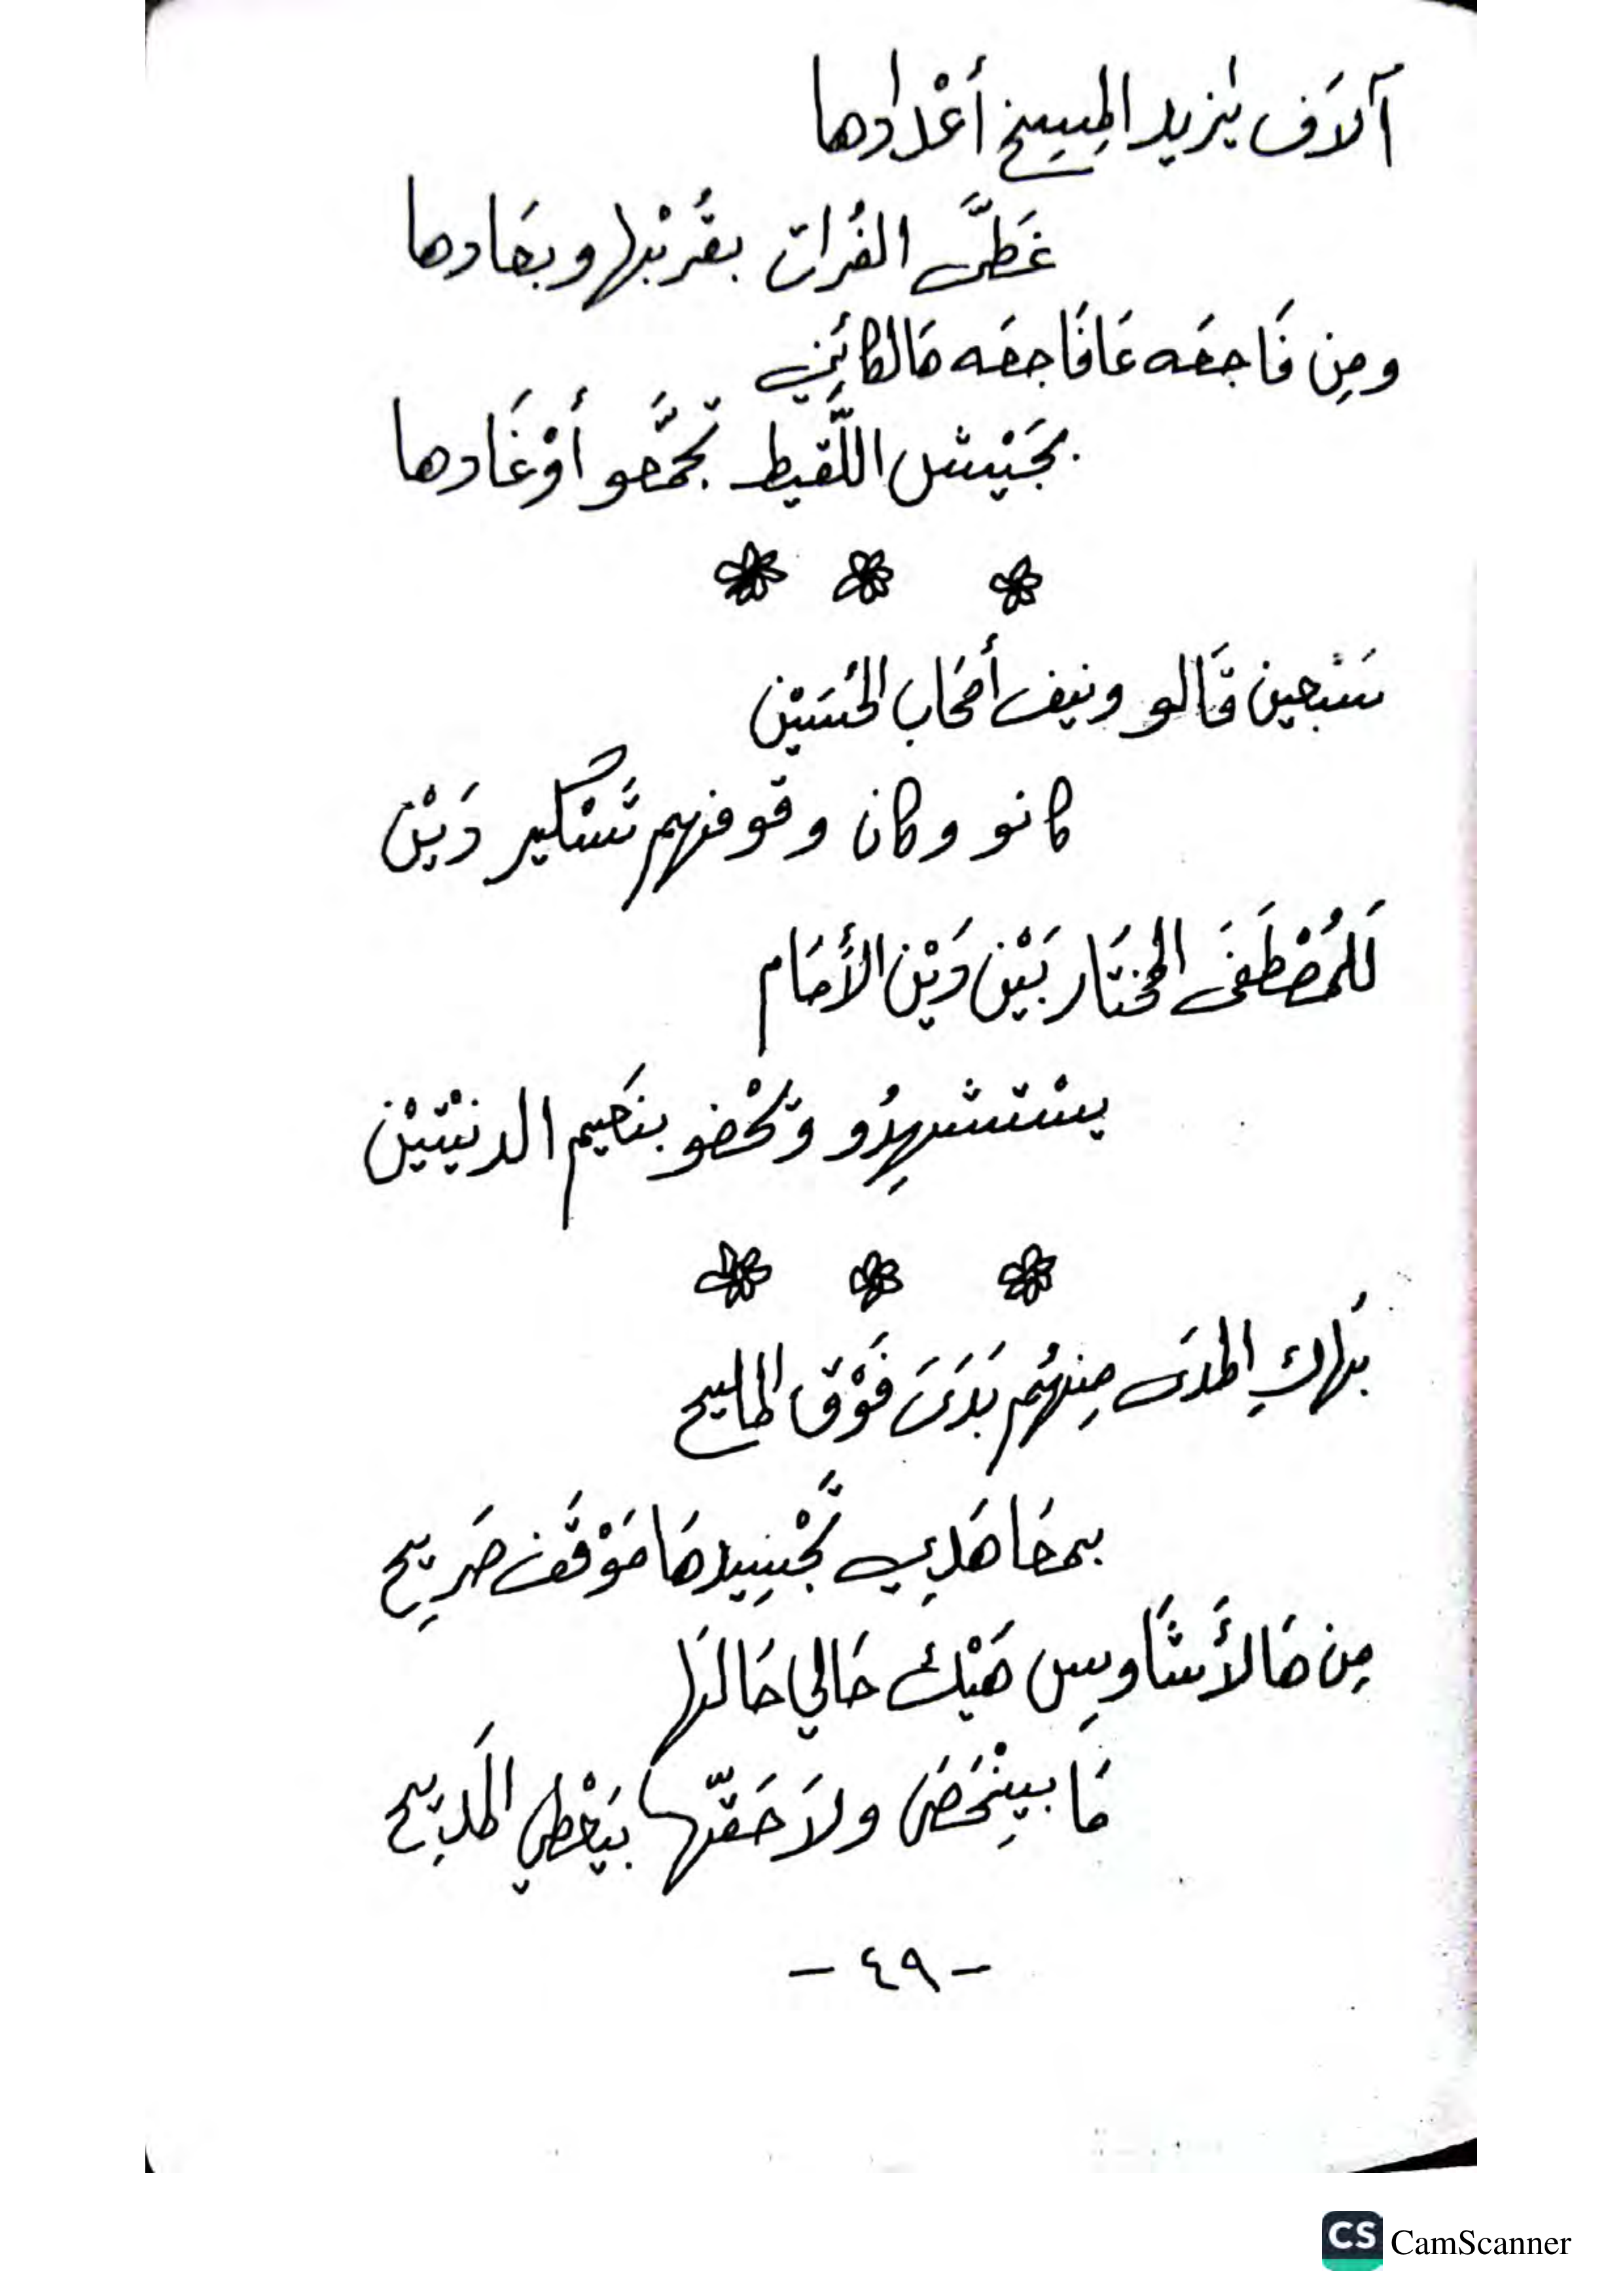 آلاَف يْزيد المِسِخ أعْدادها
غَطَّى الفُرات بقُرْبْها وبعَادها
ومِن فَاجعَه عَافَاجعَه هَالكائَنِي
بجَيْش اللَّقيط تجَمَّعو أوْغَادها
سَبْعين قَالو ونيف أصْحَاب الحُسَيْن
كانو وكان وقوفهم تَسْكير دَيْن
لَلمُصْطَفَى المختَار بَيْن دَيْن الأمَام
يسْتشهِدُو وتحْضو بنَعيم الدنيْتَيْن
بْهاكِ المدَى مِنهُم بَدَىَ فَوْق المليح
بمجَاهَدِي تَجْسِيدهَا مَوْقَف صَرِيح
مِن هَالأَشَاوِس هَيْك حَالي حَالهَا
مَا بيِنْحَصَى ولاَ حَقّها بيَعْطي المَديِح
- ٤٩ -
CS CamScanner